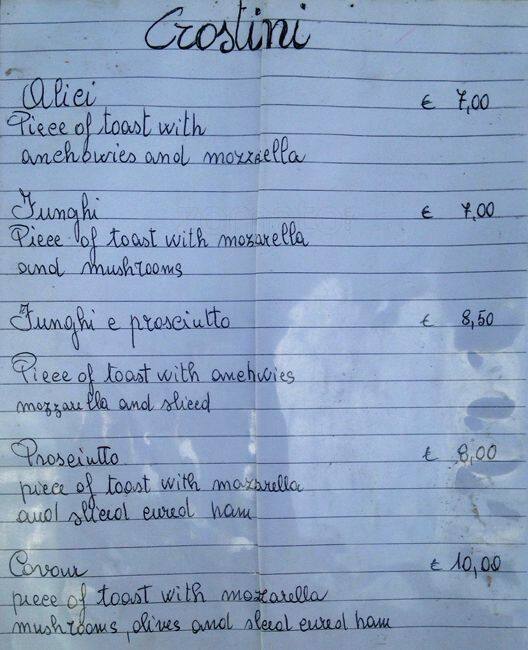 Crostini
Alici € 7,00
Piece of toast with
anchowies and mozzarella
Funghi € 7,00
Piece of toast with mozarella
and mushrooms
Funghi e prosciutto € 8,50
Piece of toast with anchwies
mozzarella and sliced
Prosciutto € 8,00
piece of toast with mozarella
and sliced cured ham
Cavour € 10,00
piece of toast with mozzarella
mushrooms, olives and sleed cured ham